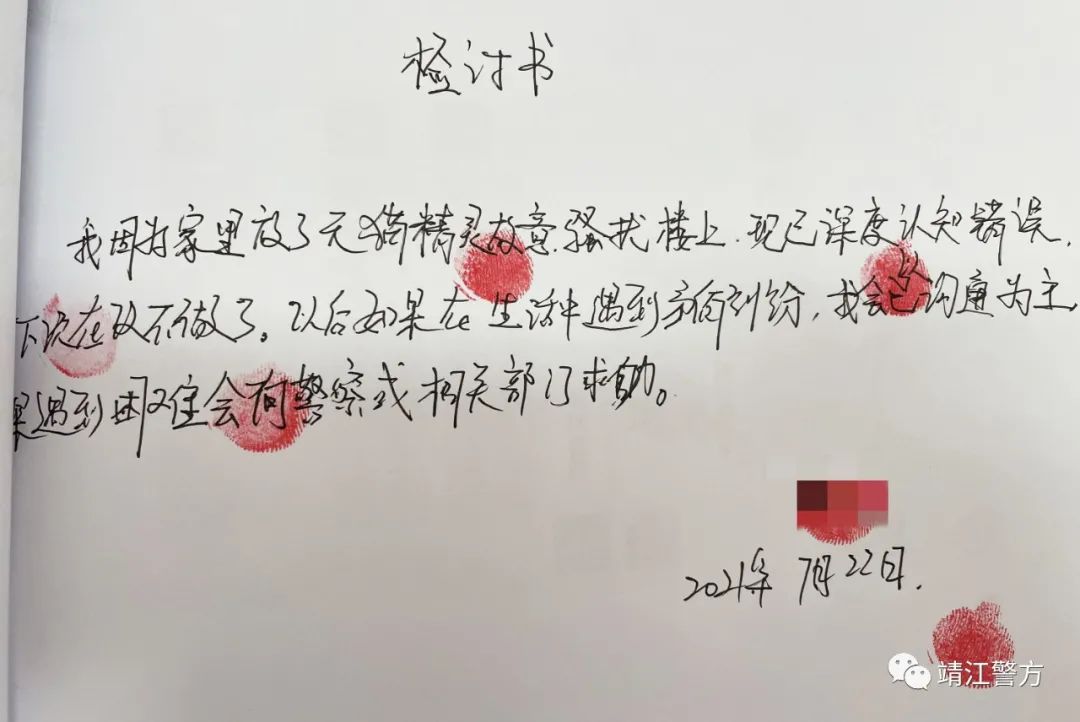 检讨书
我因为家里放了天猫精灵故意骚扰楼上.现已深度认知错误,
下次在 不做了。以后如果在生活中遇到 纠纷,我会以沟通为主,
果遇到困难会向警察或相关部门求助。
2021年7月22日.
靖江警方